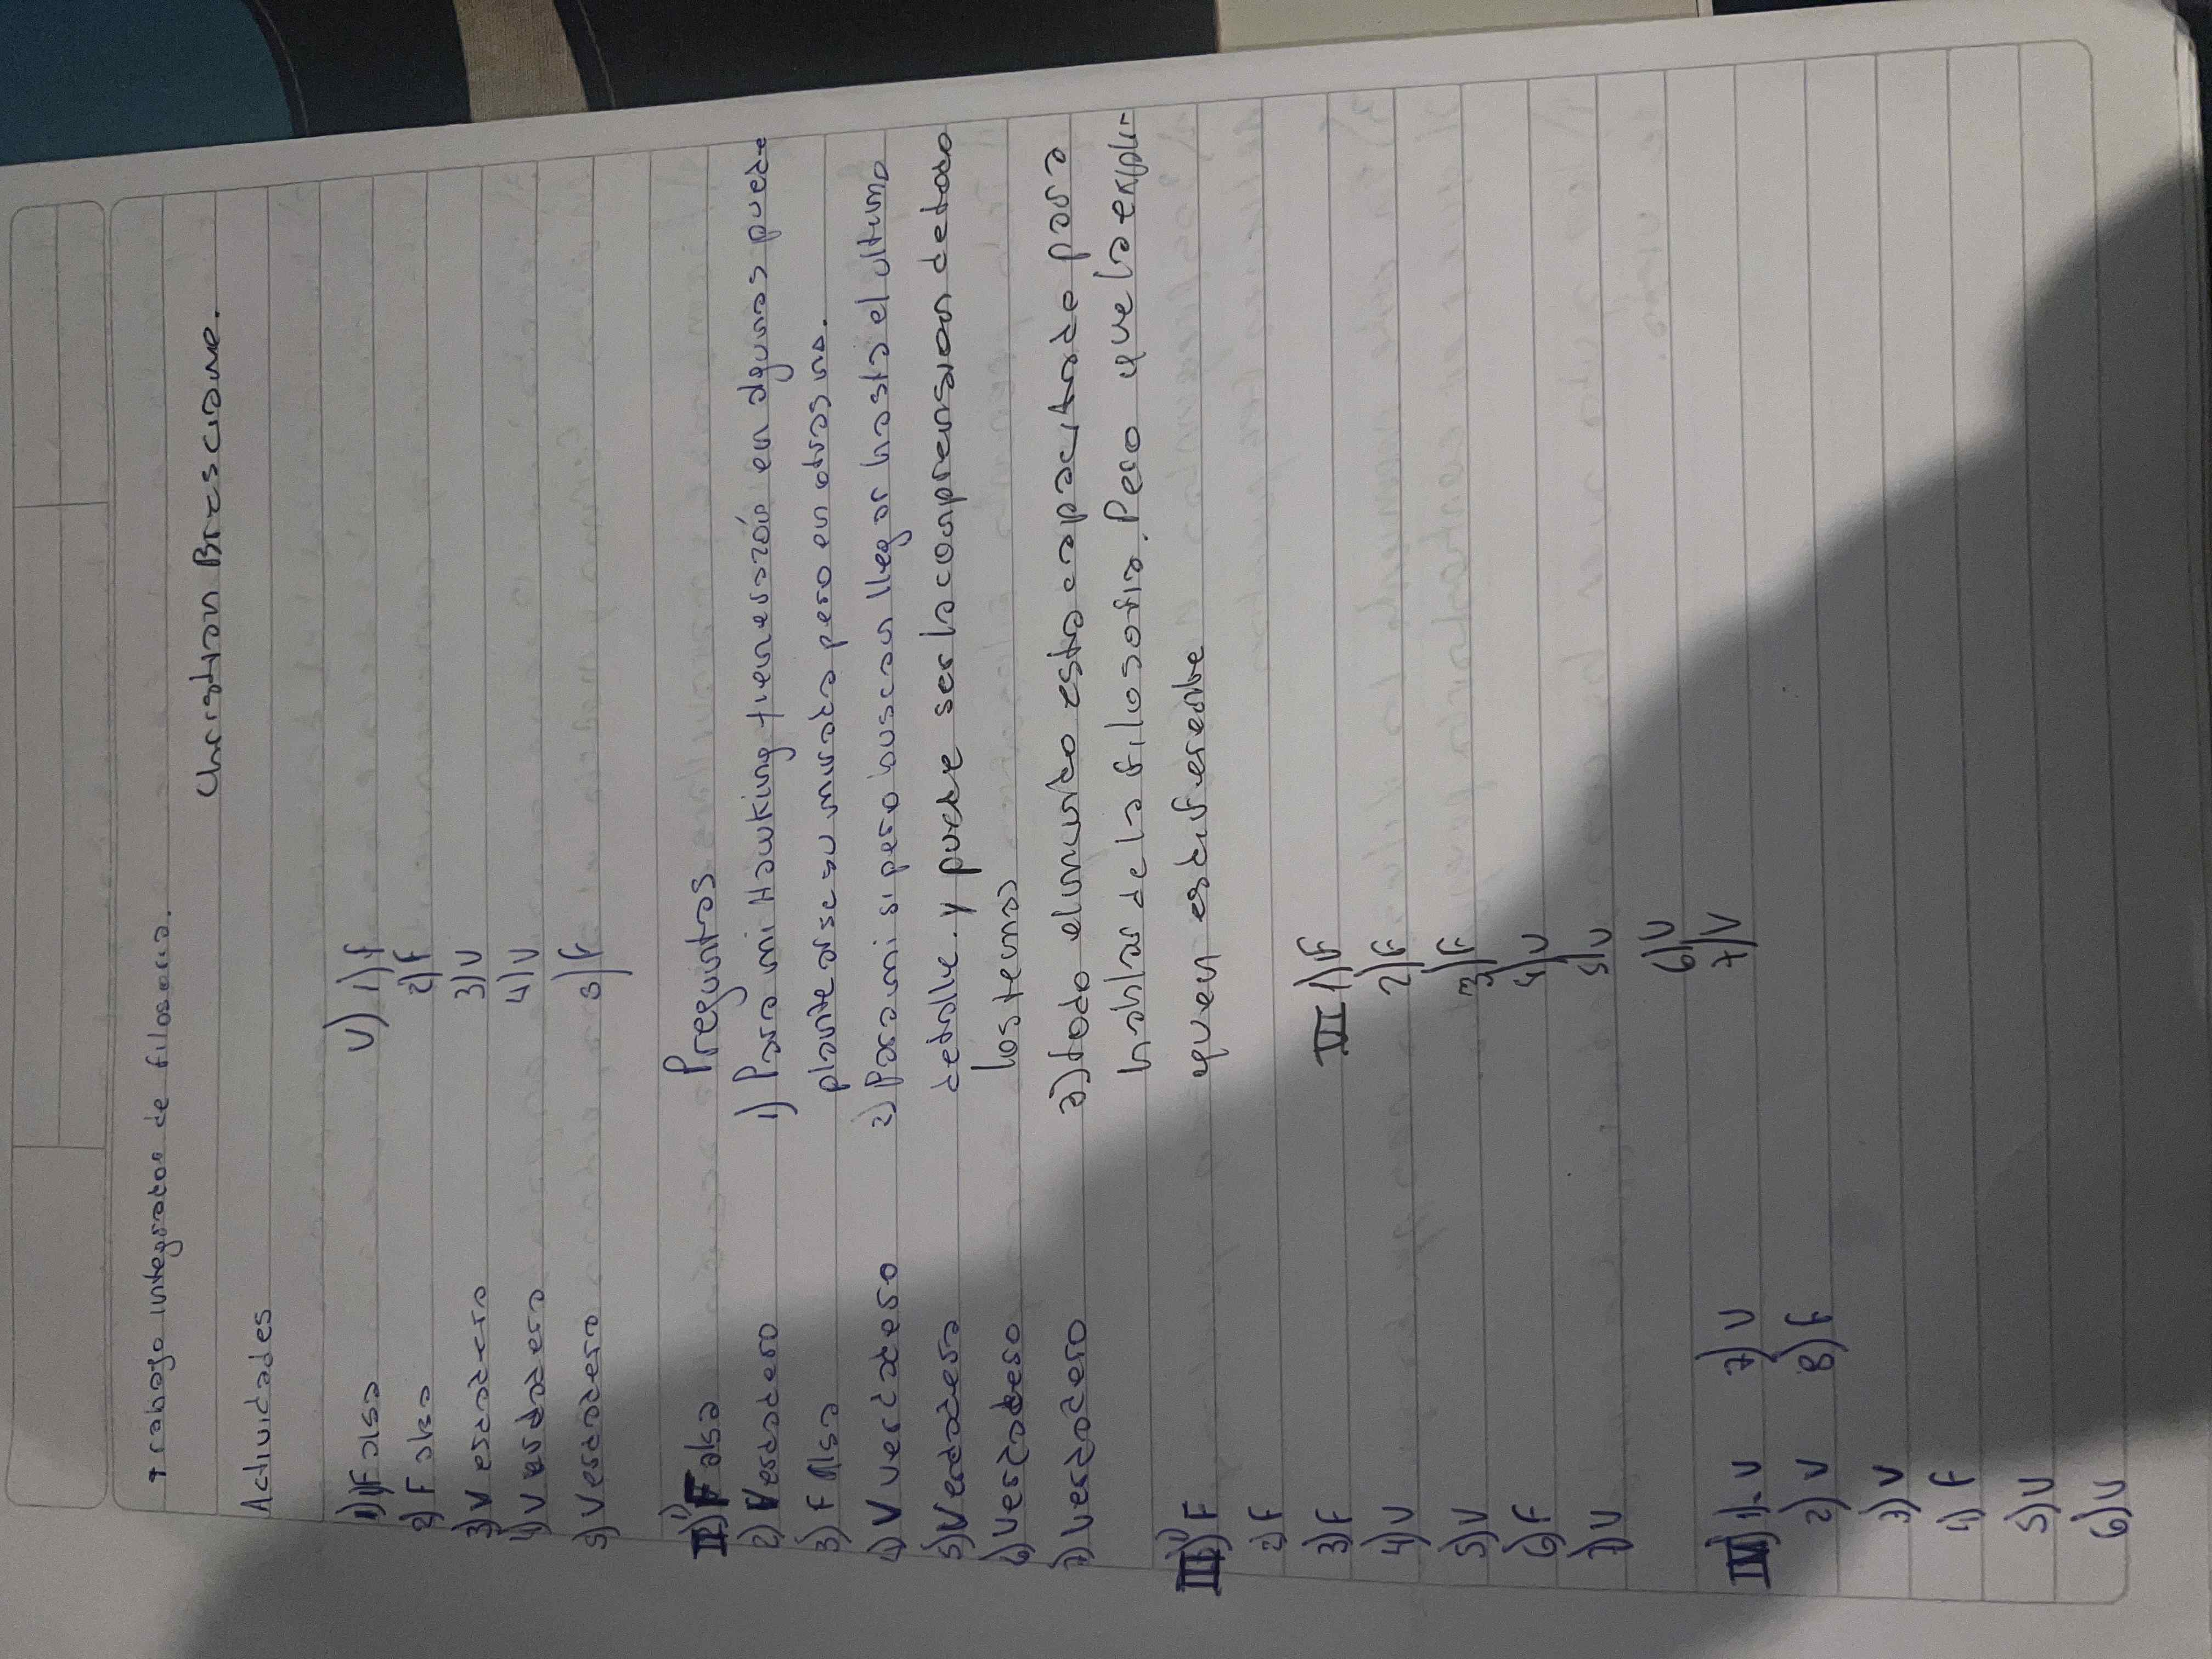 trabajo integrador de filosofia.
Christian Bresciane.
Actividades
1) Falso
2) Falso
3) Verdadero
4) Verdadero
5) Verdadero
II) 1) Falso
2) Verdadero
3) Falso
4) Verdadero
5) Verdadero
6) verdadero
7) verdadero
III) 1) F
2) F
3) F
4) V
5) V
6) F
7) V
IV) 1) V
2) V
3) V
4) F
5) V
6) V
7) V
8) F
V) 1) F
2) F
3) V
4) V
5) F
Preguntas
1) Para mi Hawking tiene razón en algunas puede
plantearse su mirada pero en otras no.
2) Para mi si pero buscan llegar hasta el ultimo
detalle. y puede ser la comprension de todo
los temas
3) todo el mundo esta capacitado para
hablar de la filosofia. Pero que la expli-
quen es diferente
III 1) F
2) F
3) F
4) V
5) V
6) V
7) V